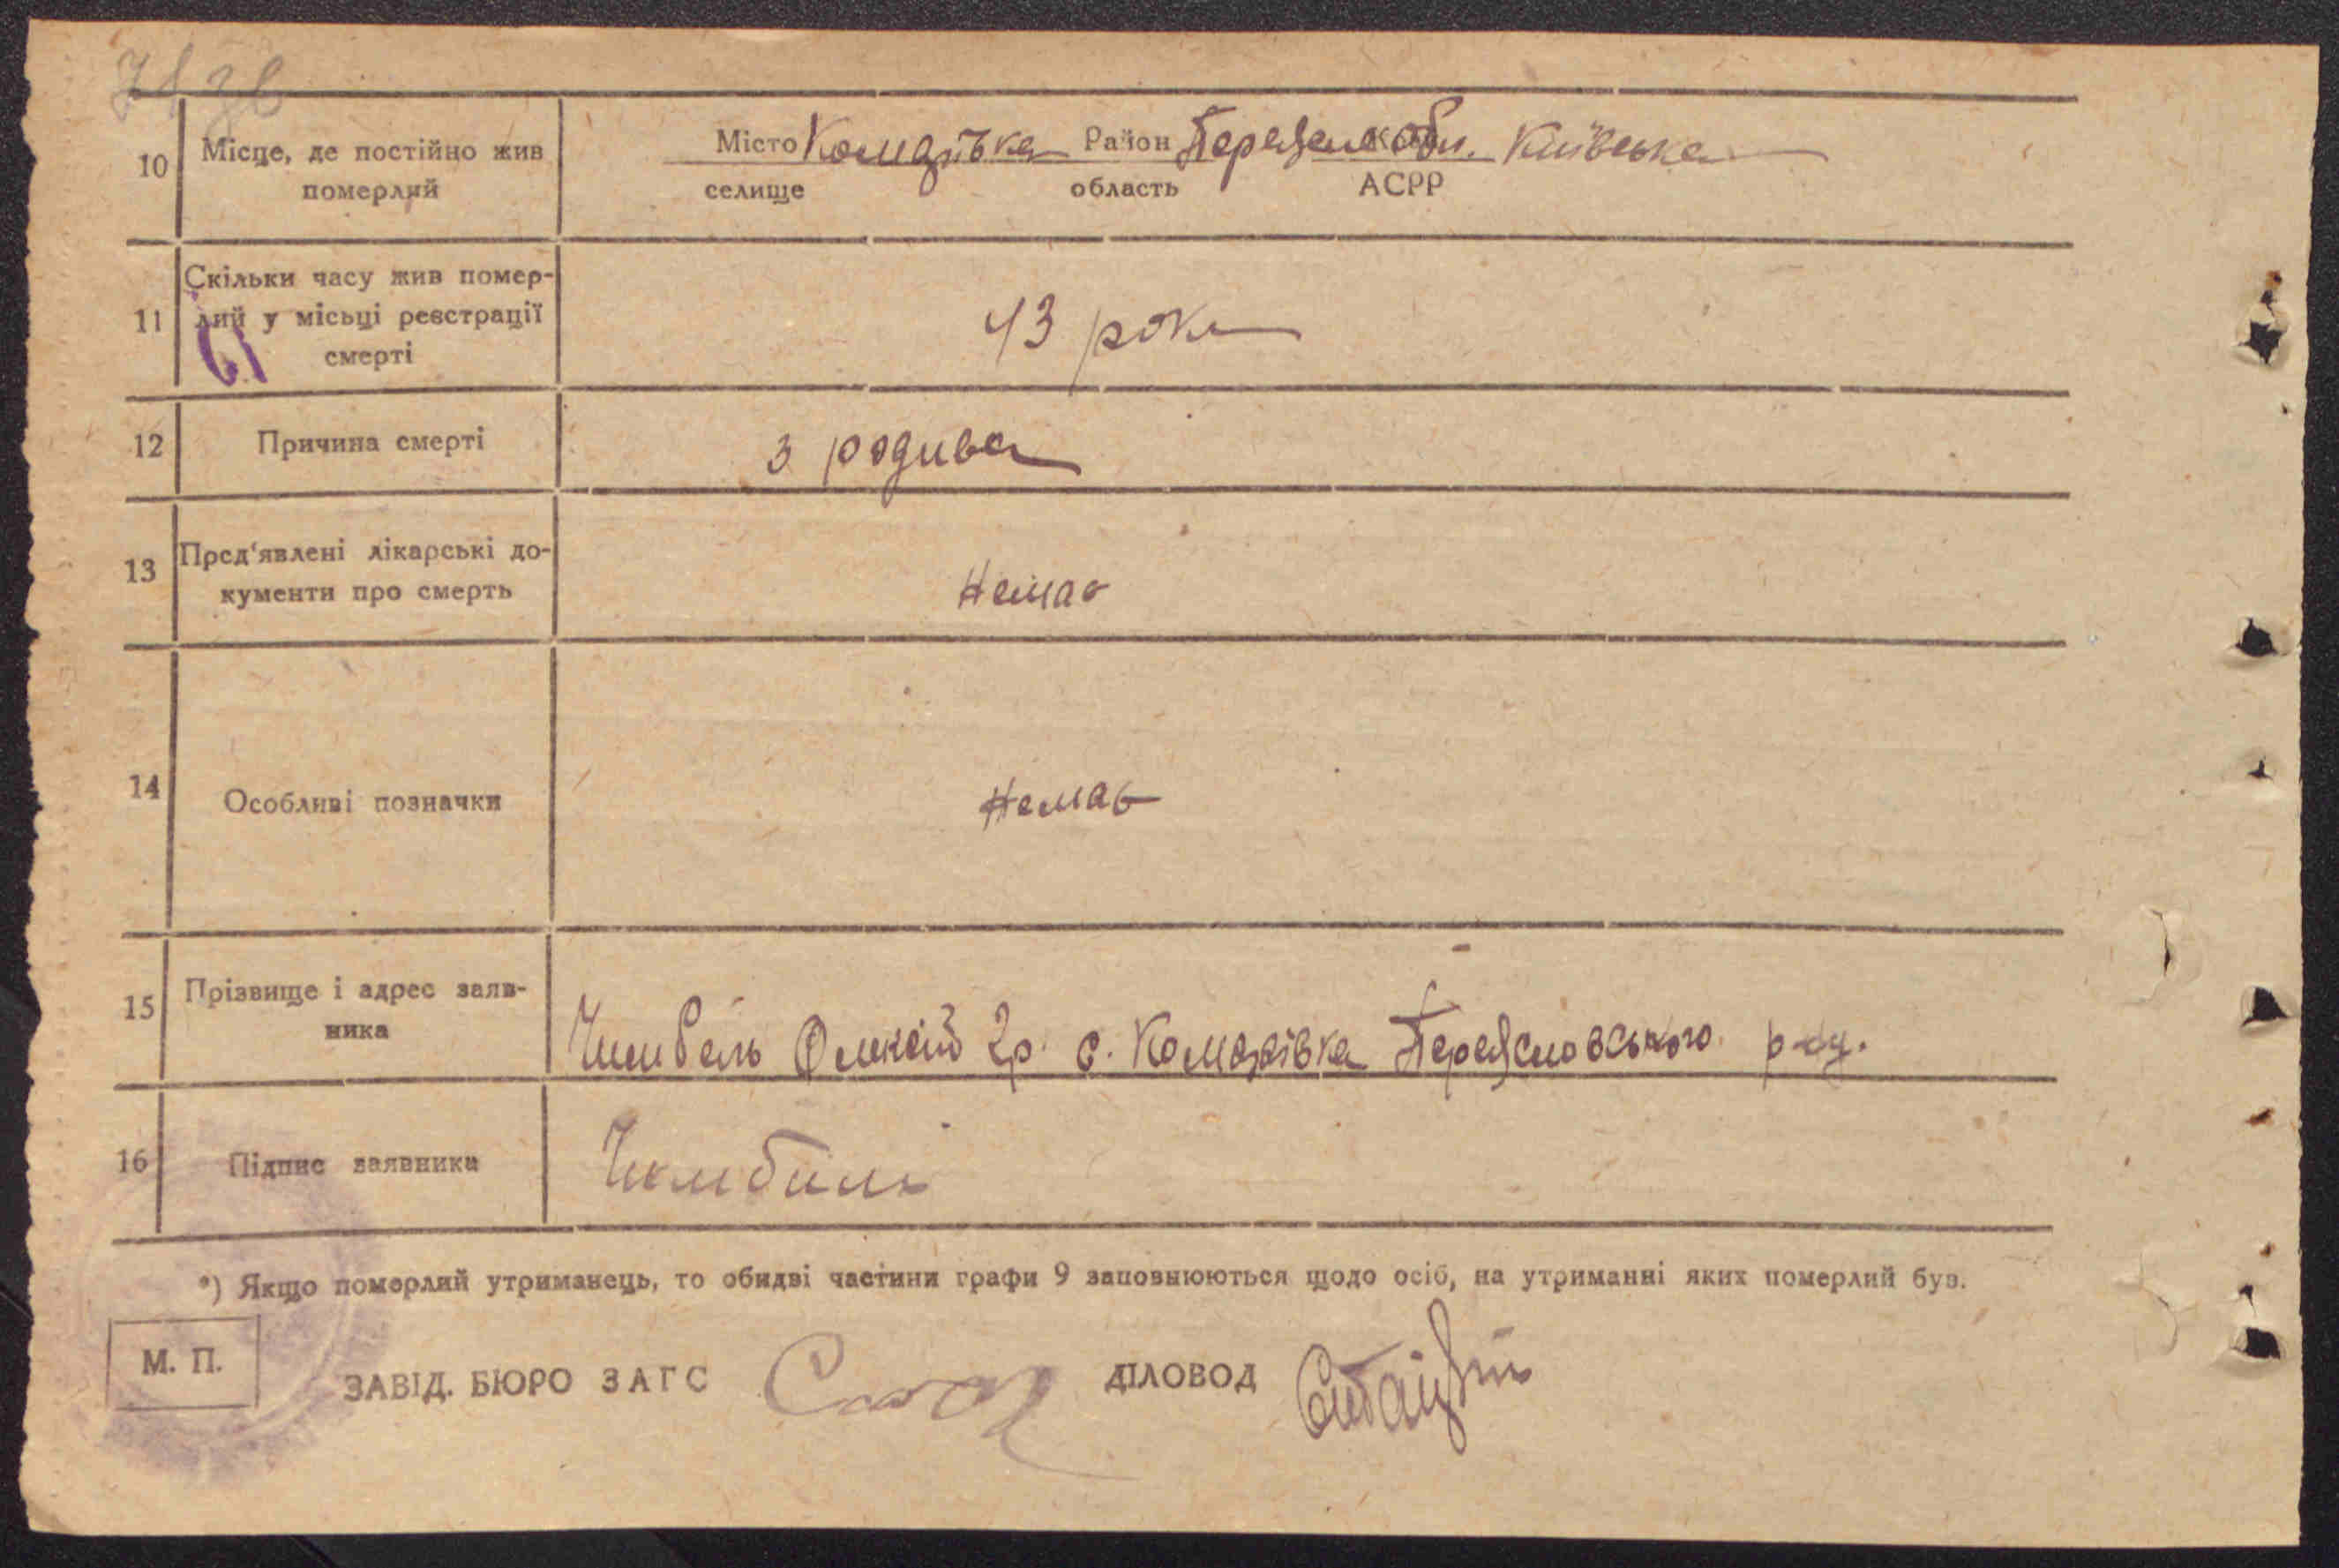 10 Місце, де постійно жив
померлий
Місто Комарівка Район Переяслов обл. Київська
селище область АСРР
11 Скільки часу жив помер-
лий у місьці реєстрації
смерті
43 роки
12 Причина смерті
з родива
13 Пред'явлені лікарські до-
кументи про смерть
Немає
14 Особливі позначки
Немає
15 Прізвище і адрес заяв-
ника
Чимбель Олексій с. Комарівка Переясловського р-ну.
16 Підпис заявника
Чимбиль
*) Якщо померлий утриманець, то обидві частини графи 9 заповнюються щодо осіб, на утриманні яких померлий був.
М. П.
ЗАВІД. БЮРО ЗАГС
ДІЛОВОД